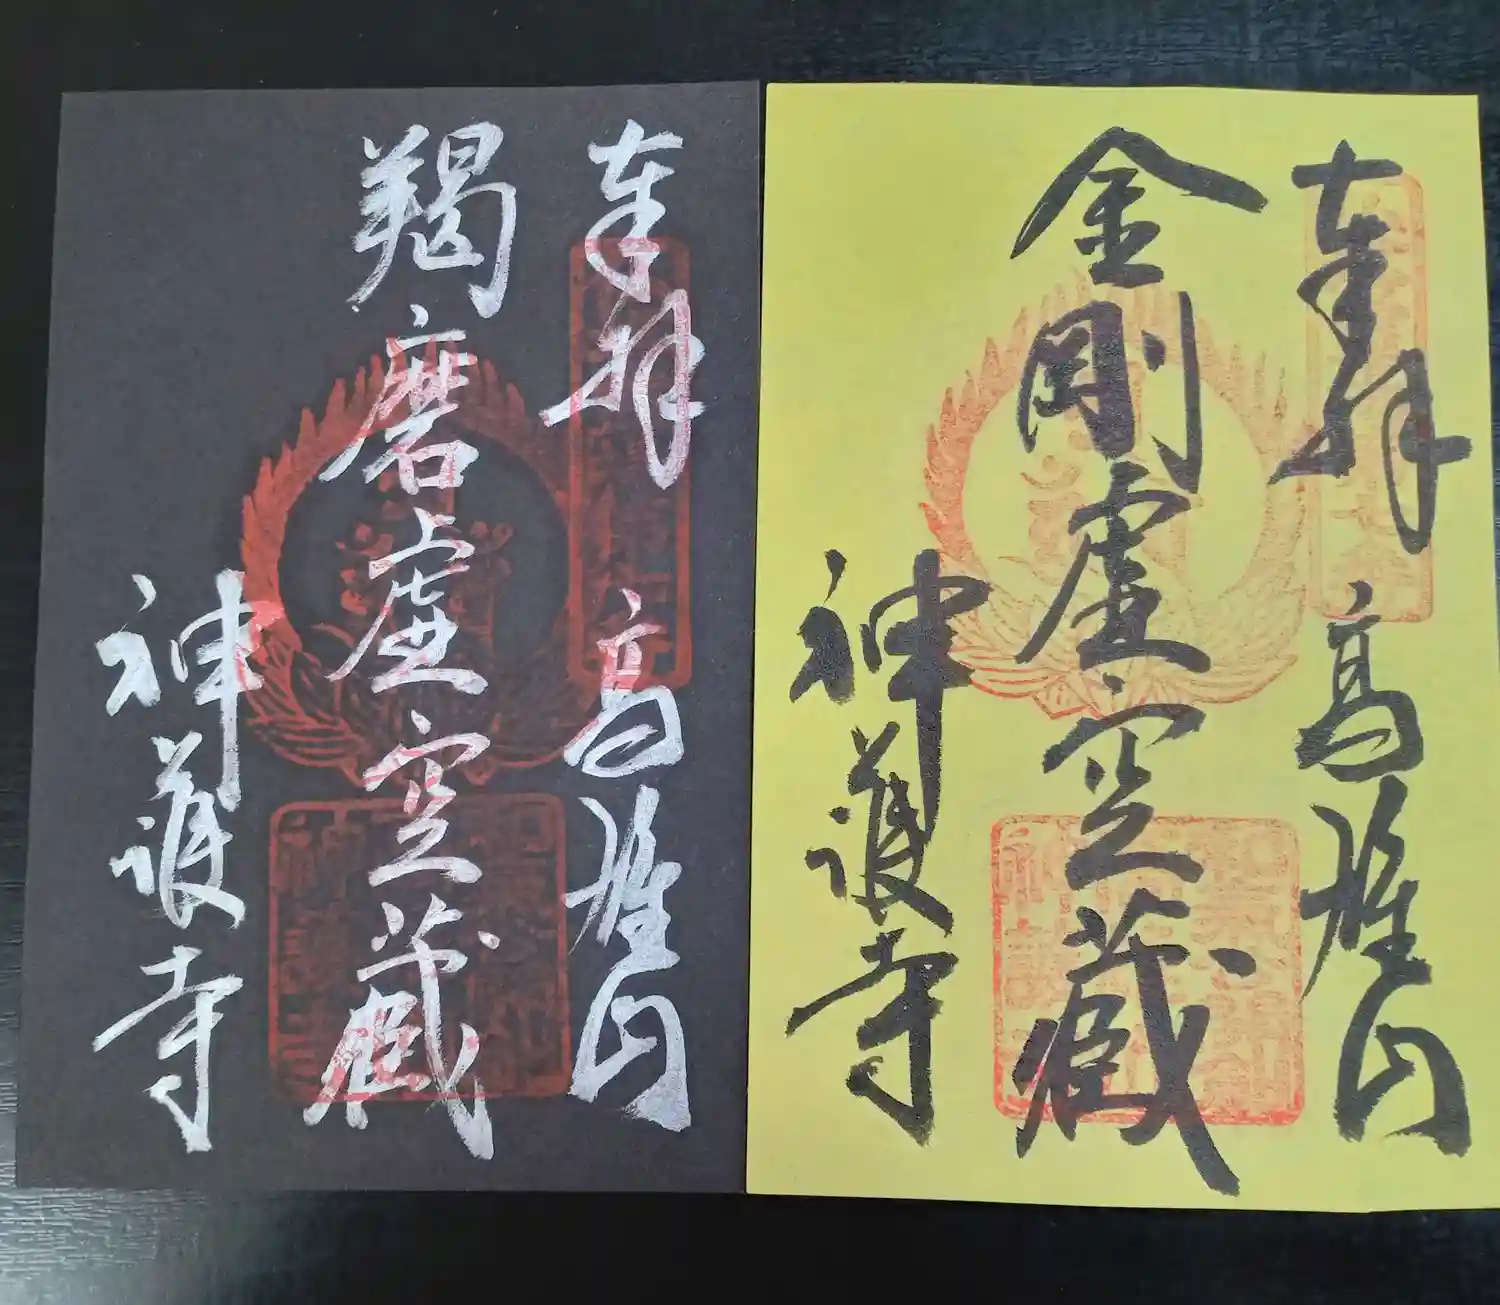 奉拝 高雄山
羯磨虚空蔵
神護寺
奉拝 高雄山
金剛虚空蔵
神護寺